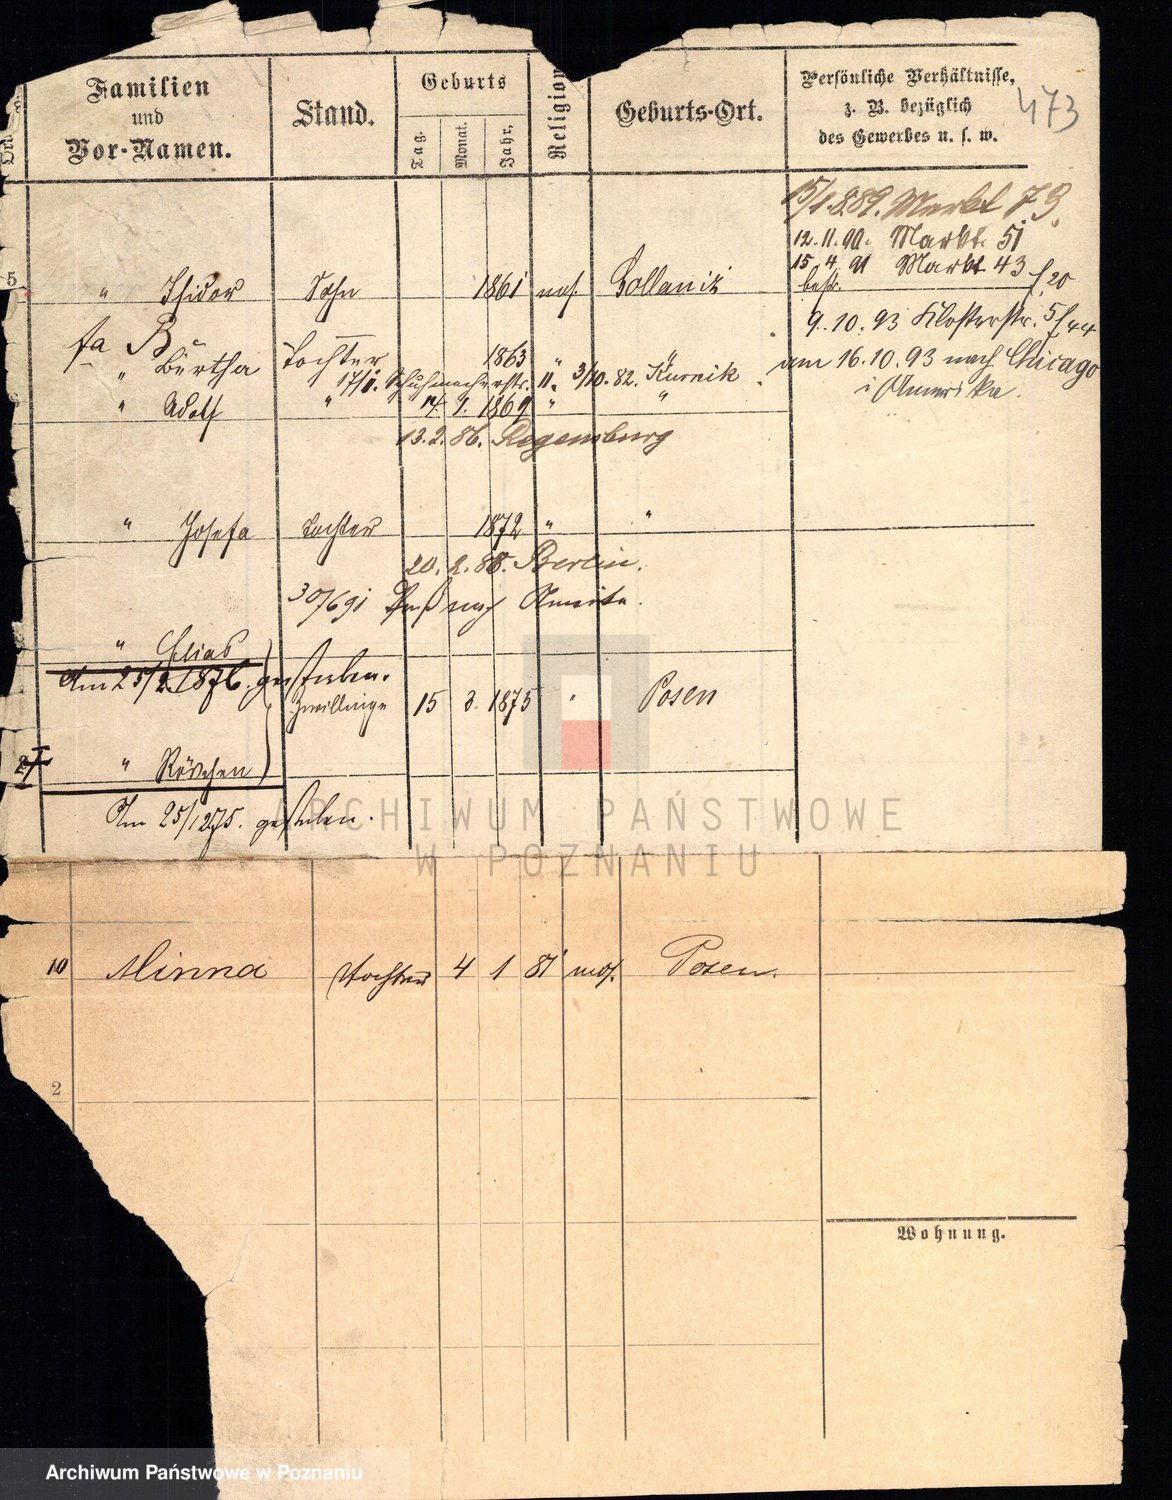 Familien und Vor-Namen.
Stand.
Geburts
Tag.
Monat.
Jahr.
Religion
Geburts-Ort.
Persönliche Verhältnisse,
z. B. bezüglich
des Gewerbes u. s. w.
473
Ort.
15/4.89. Markt 79.
12.11.90. Markt 51
15.4.91 Markt 43
9.10.93 Klosterstr. 5
am 16.10.93 nach Chicago
i Amerika.
5
" Isidor Sohn 1861 mos. Gollanik
fa B
" Bertha Tochter 1863 " "
Schuhmacherstr. 11. 3/10.82. Kurnik
" Adolf " 14 9. 1869 " "
13.2.86. Regensburg
" Josefa Tochter 1872 " "
20.2.88. Berlin.
30/6 91 Paß nach
" Elias
Am 25/2.1876. gestorben.
Zwillinge 15 3. 1875 " Posen
" Röschen
Am 25/12.75. gestorben.
ARCHIWUM PAŃSTWOWE
W POZNANIU
10 Minna Tochter 4 1 81 mos. Posen.
2
Wohnung.
Archiwum Państwowe w Poznaniu